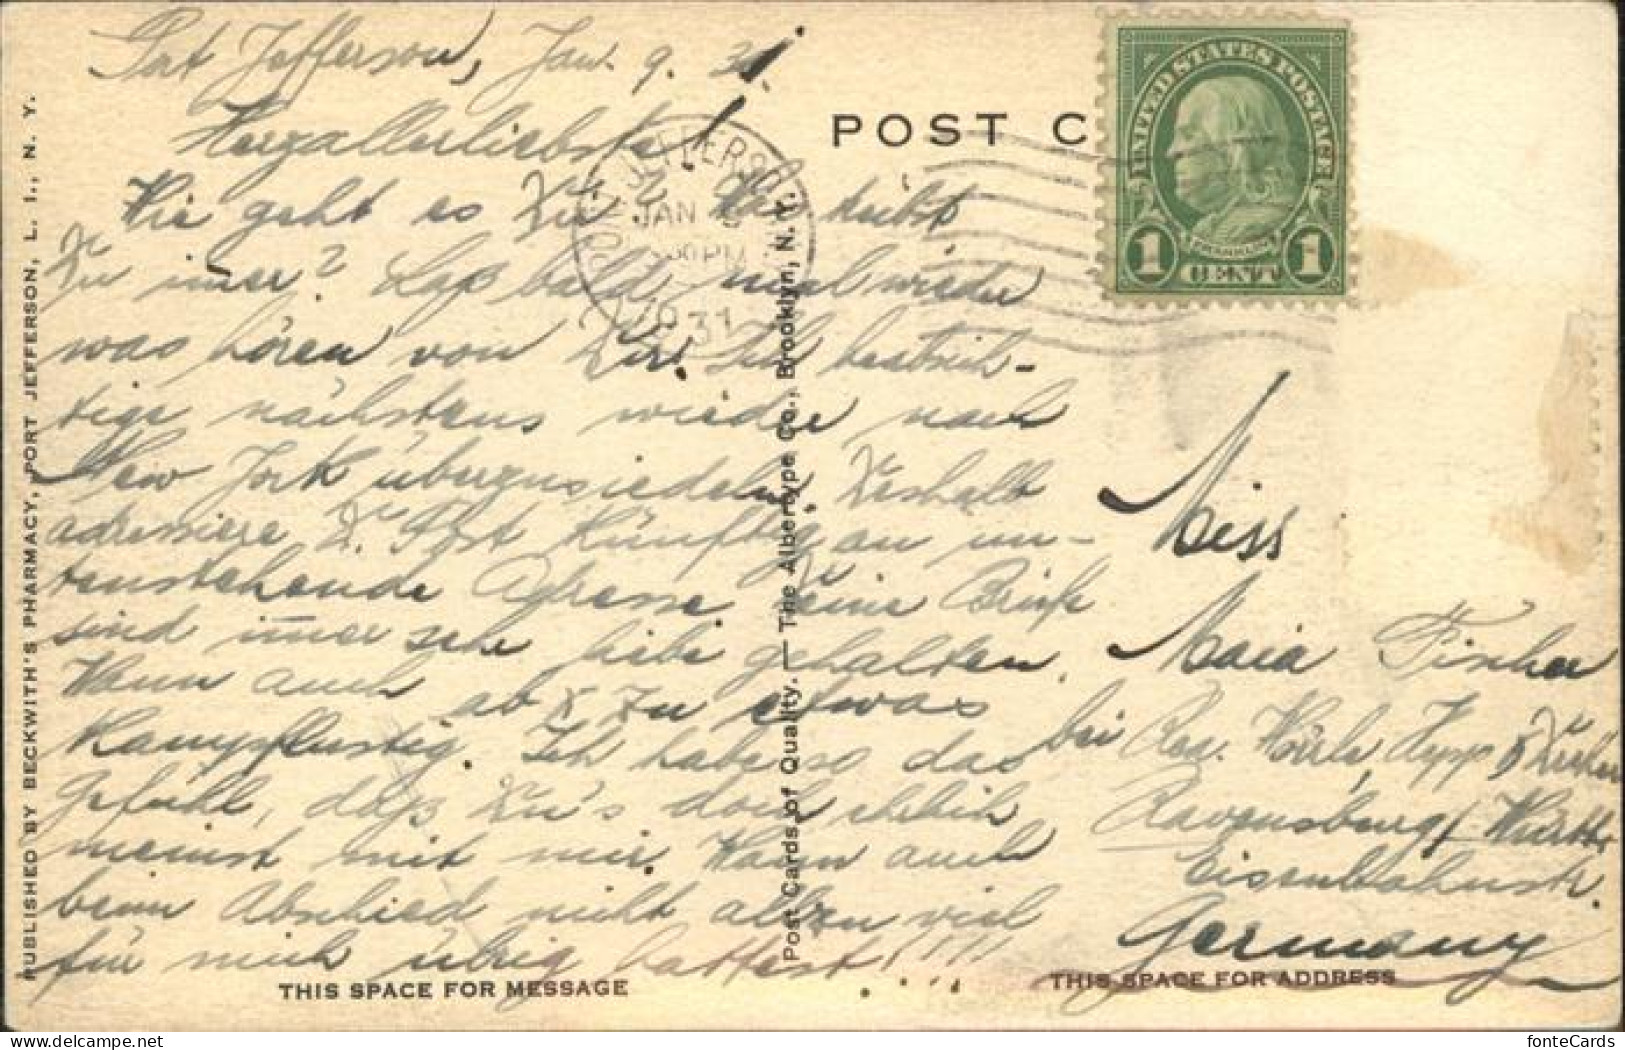 Port Jefferson, Jan. 9. 31.
Herzallerliebste!
Wie geht es Dir? Was treibst
Du im̅er? Lass bald mal wieder
was hören von Dir. Ich beabsich-
tige nächstens wieder nach
New York überzusiedeln. Deshalb
adressiere D. Post künftig an un-
tenstehende Adresse. Deine Briefe
sind im̅er sehr liebe gehalten.
Wenn auch ab & zu etwas
Kampflustig. Ich habe so das
Gefühl, dass Du's doch ehrlich
meinst mit mir. Wenn auch
beim Abschied nicht allzu viel
für mich übrig hattest!!!!
THIS SPACE FOR MESSAGE
PUBLISHED BY BECKWITH'S PHARMACY, PORT JEFFERSON, L. I., N. Y.
Post Cards of Quality. — The Albertype Co., Brooklyn, N. Y.
POST C
PORT JEFFERSON
JAN 9
30 PM
1931
UNITED STATES POSTAGE
FRANKLIN
1 CENT 1
Miss
Maria Fischer
bei
Ravensburg / Württbr.
Eisenbahnstr.
Germany
THIS SPACE FOR ADDRESS
fonteCards